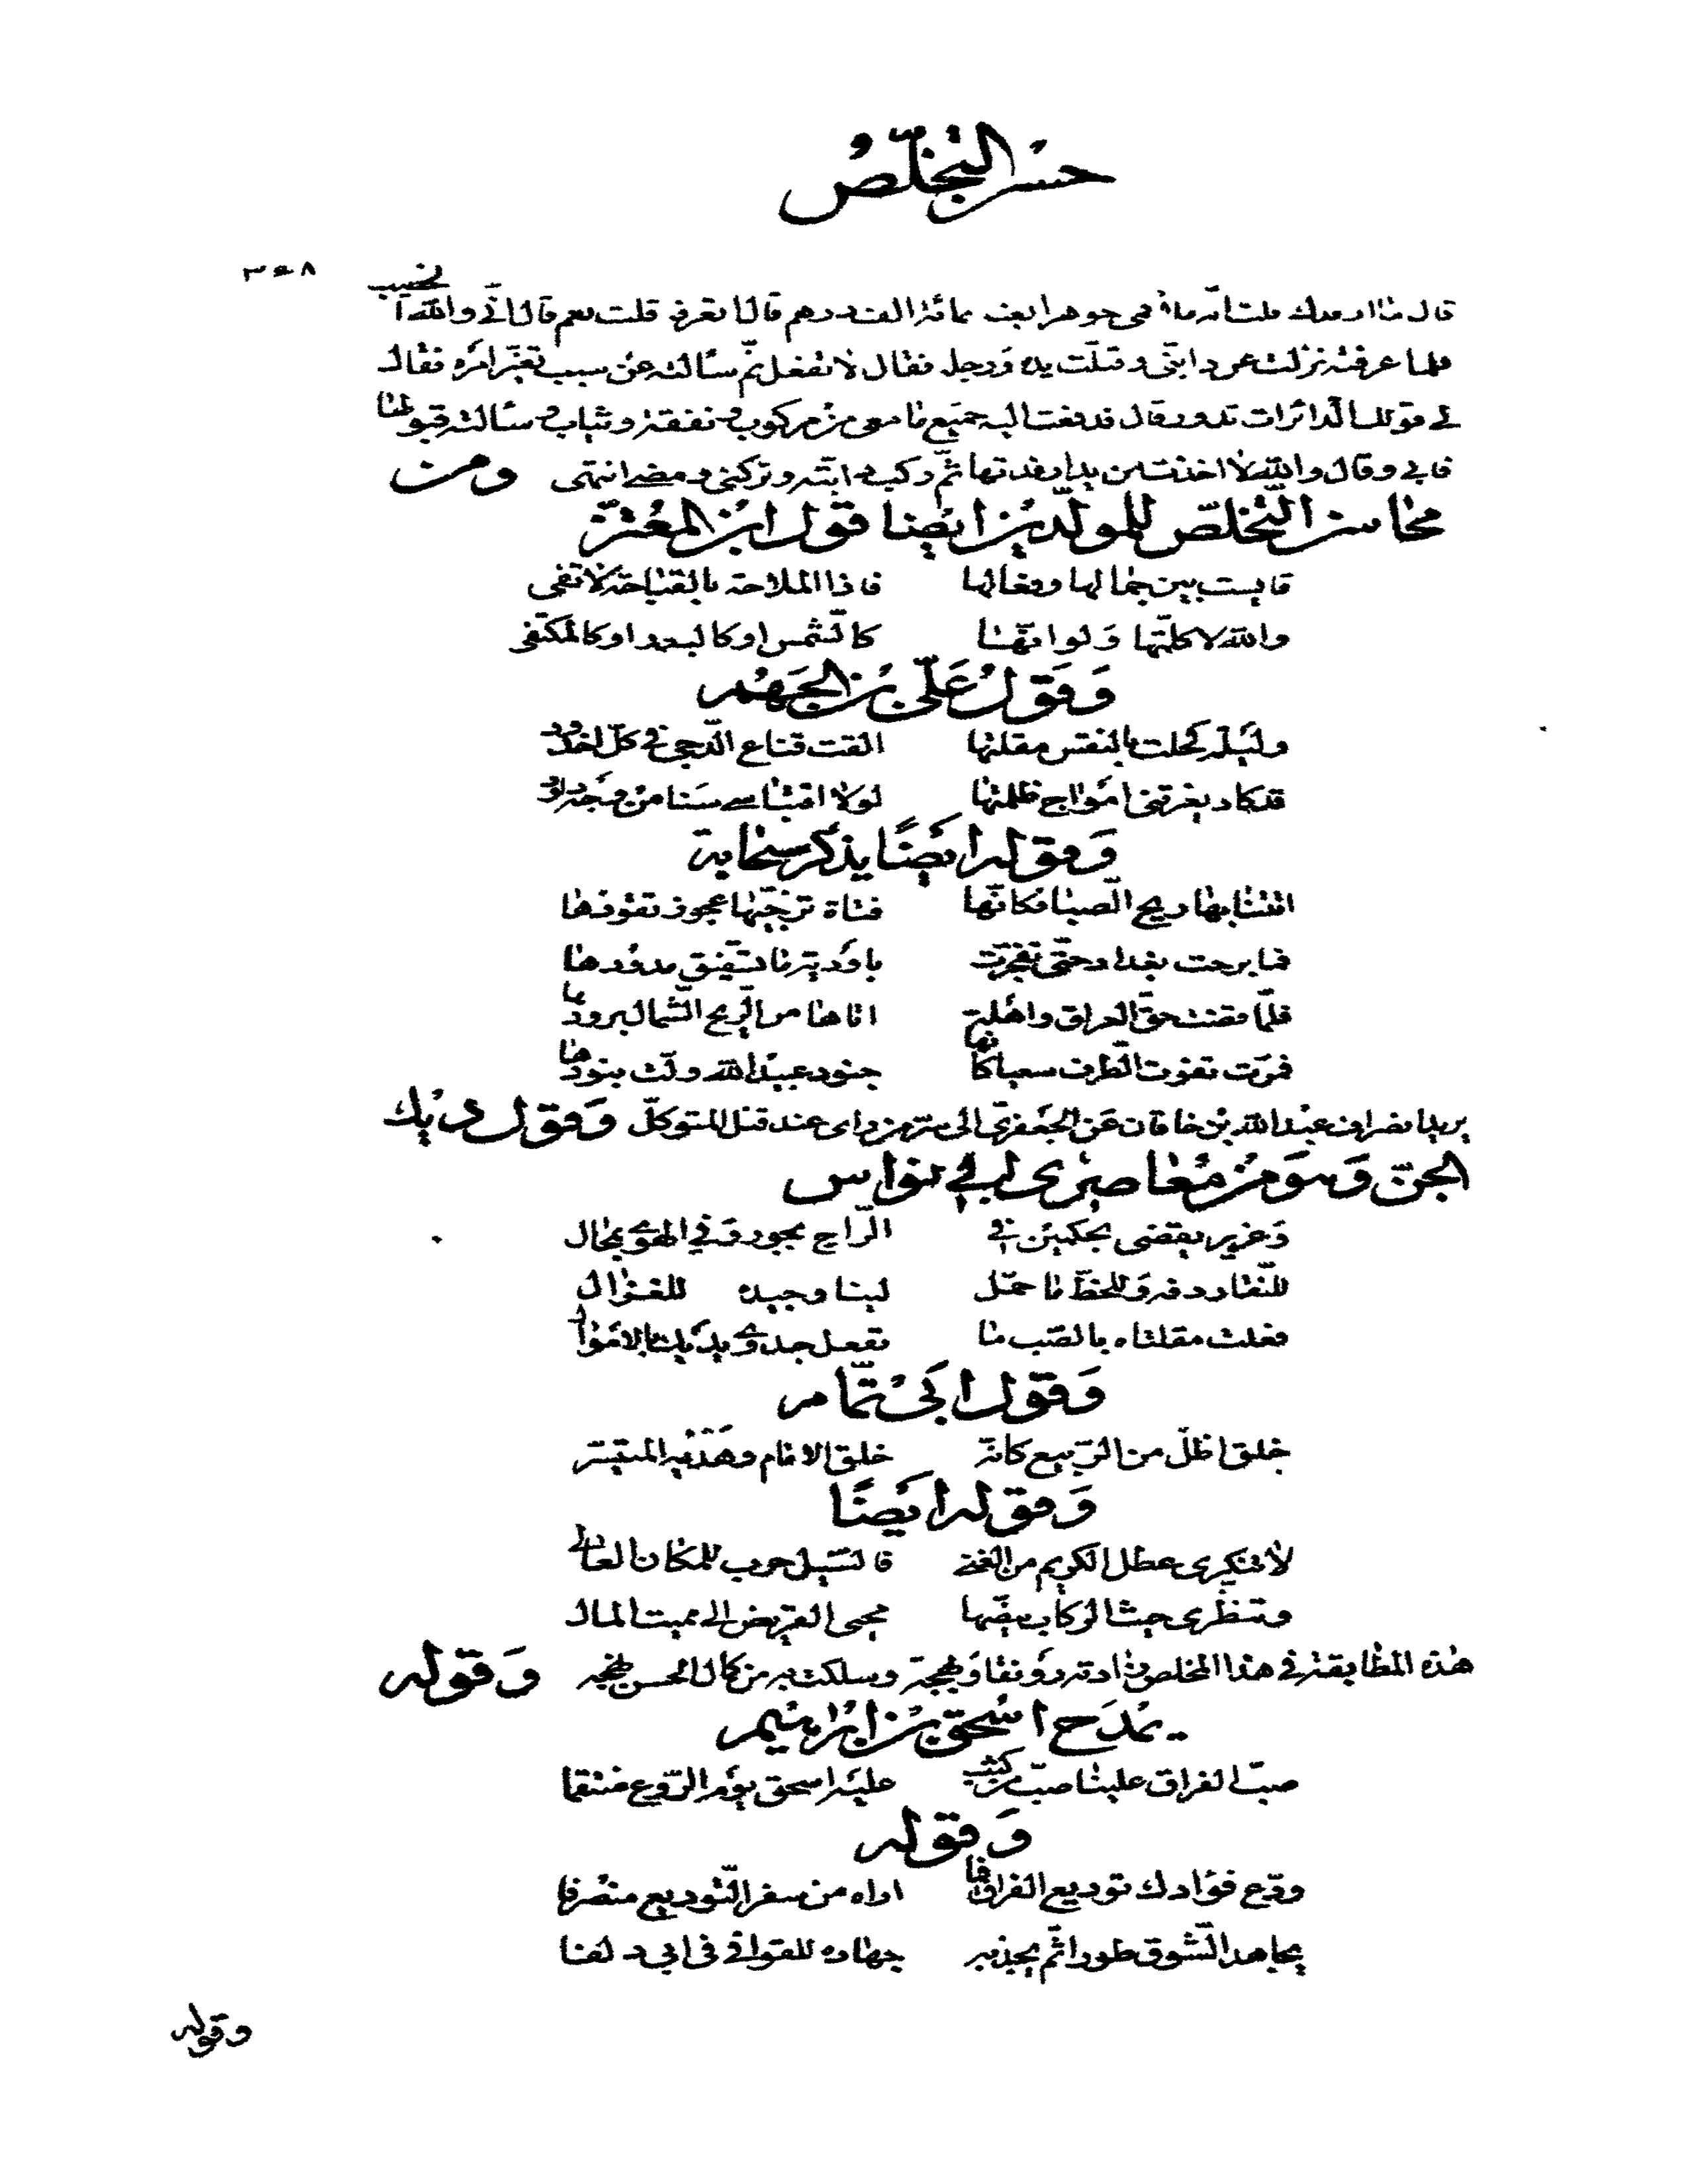 حسن التخلّص
٣٥٨
قال ما اسمك قلت انّه ما في جوهرا بعت بمائة الف درهم قال اتعرفني قلت نعم قال انّي والله الخصيب
فلما عرفته نزلت عن دابتّي وقبّلت يده ورجله فقال لا تفعل ثمّ سألته عن سبب تغيّر امره فقال
لي قولك الدّائرات تدور قال فدفعت اليه جميع ما معي من مركوب ونفقة وثياب وسألته قبولها
فابي وقال والله لا اخذت من يدا بعدتها ثمّ ركب دابّته وتركني ومضى انتهى ومن
محاسن التّخلّص للمولّدين ايضا قول ابن المعتزّ
قايست بين جمالها وفعالها فاذا الملاحة بالقباحة لا تفي
والله لا كلّمتها ولو انّها كالشّمس او كالبدر او كالمكتفي
وقول علي بن الجهم
وليلة كحلت بالنقس مقلتها القت قناع الدّجى في كلّ اخدود
قد كاد يغرقني امواج ظلمتها لولا اقتباسي سنا من وجه داود
وقوله ايضًا يذكر سحابة
اتتنا بها ريح الصّبا فكانّها فتاة تزجّيها عجوز تقودها
فما برحت بغداد حتّى تفجّرت باودية ما تستفيق مدودها
فلمّا قضت حقّ العراق واهله اتاها من الرّيح الشّمال برودها
فمرّت تفوت الطّرف سعيا كانّها جنود عبيد الله ولّت بنودها
يريد انصراف عبيد الله بن خاقان عن الجعفريّ الى سرّ من راى عند قتل المتوكّل وقول ديك
الجنّ وهو من معاصري ابي نواس
وغرير يقضي بحكمين في الرّاح بجور وفي الهوى بمحال
للنّقا ردفه وللخطّ ما حمّل لينا وجيده للغزال
فعلت مقلتاه بالصّب ما تفعل جدوى يديك بالاموال
وقول ابي تمّام
خلق اظلّ من الرّبيع كانّه خلق الامام وهديه المتيسّر
وقوله ايضًا
لا تنكري عطل الكريم من الغنى فالسّيل حرب للمكان العالي
وتنظّري حيث الركاب ينصّها محيي القريض الى مميت المال
هذه المطابقة في هذا المخلص زادته رونقا وبهجة وسلكت به من كمال الحسن نهجه وقوله
يمدح اسحق بن ابراهيم
صبّ الفراق علينا صبّ من كثب عليه اسحق يوم الرّوع منتقما
وقوله
ودّع فؤادك توديع الفراق فما اراه من سفر التّوديع منصرفا
يجاهد الشّوق طورا ثمّ يجذبه جهاده للقوافي في ابي دلفا
وقوله